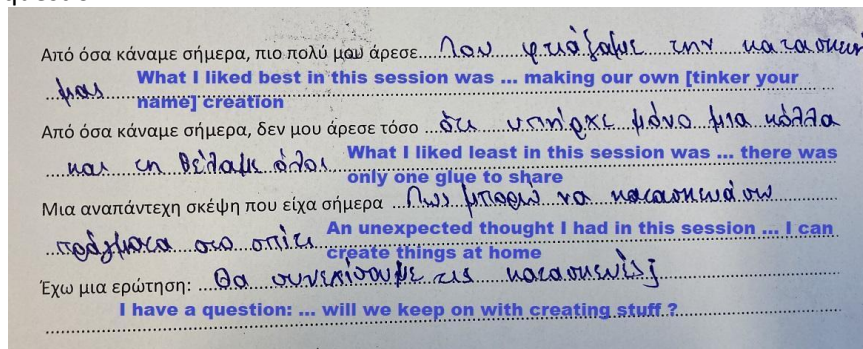 Από όσα κάναμε σήμερα, πιο πολύ μου άρεσε Που φτιάξαμε την κατασκευή
μας What I liked best in this session was ... making our own [tinker your
name] creation
Από όσα κάναμε σήμερα, δεν μου άρεσε τόσο ότι υπήρχε μόνο μια κόλλα
και τη θέλαμε όλοι What I liked least in this session was ... there was
only one glue to share
Μια αναπάντεχη σκέψη που είχα σήμερα Πως μπορώ να κατασκευάσω
πράγματα στο σπίτι An unexpected thought I had in this session ... I can
create things at home
Έχω μια ερώτηση: Θα συνεχίσουμε τις κατασκευές;
I have a question: ... will we keep on with creating stuff ?